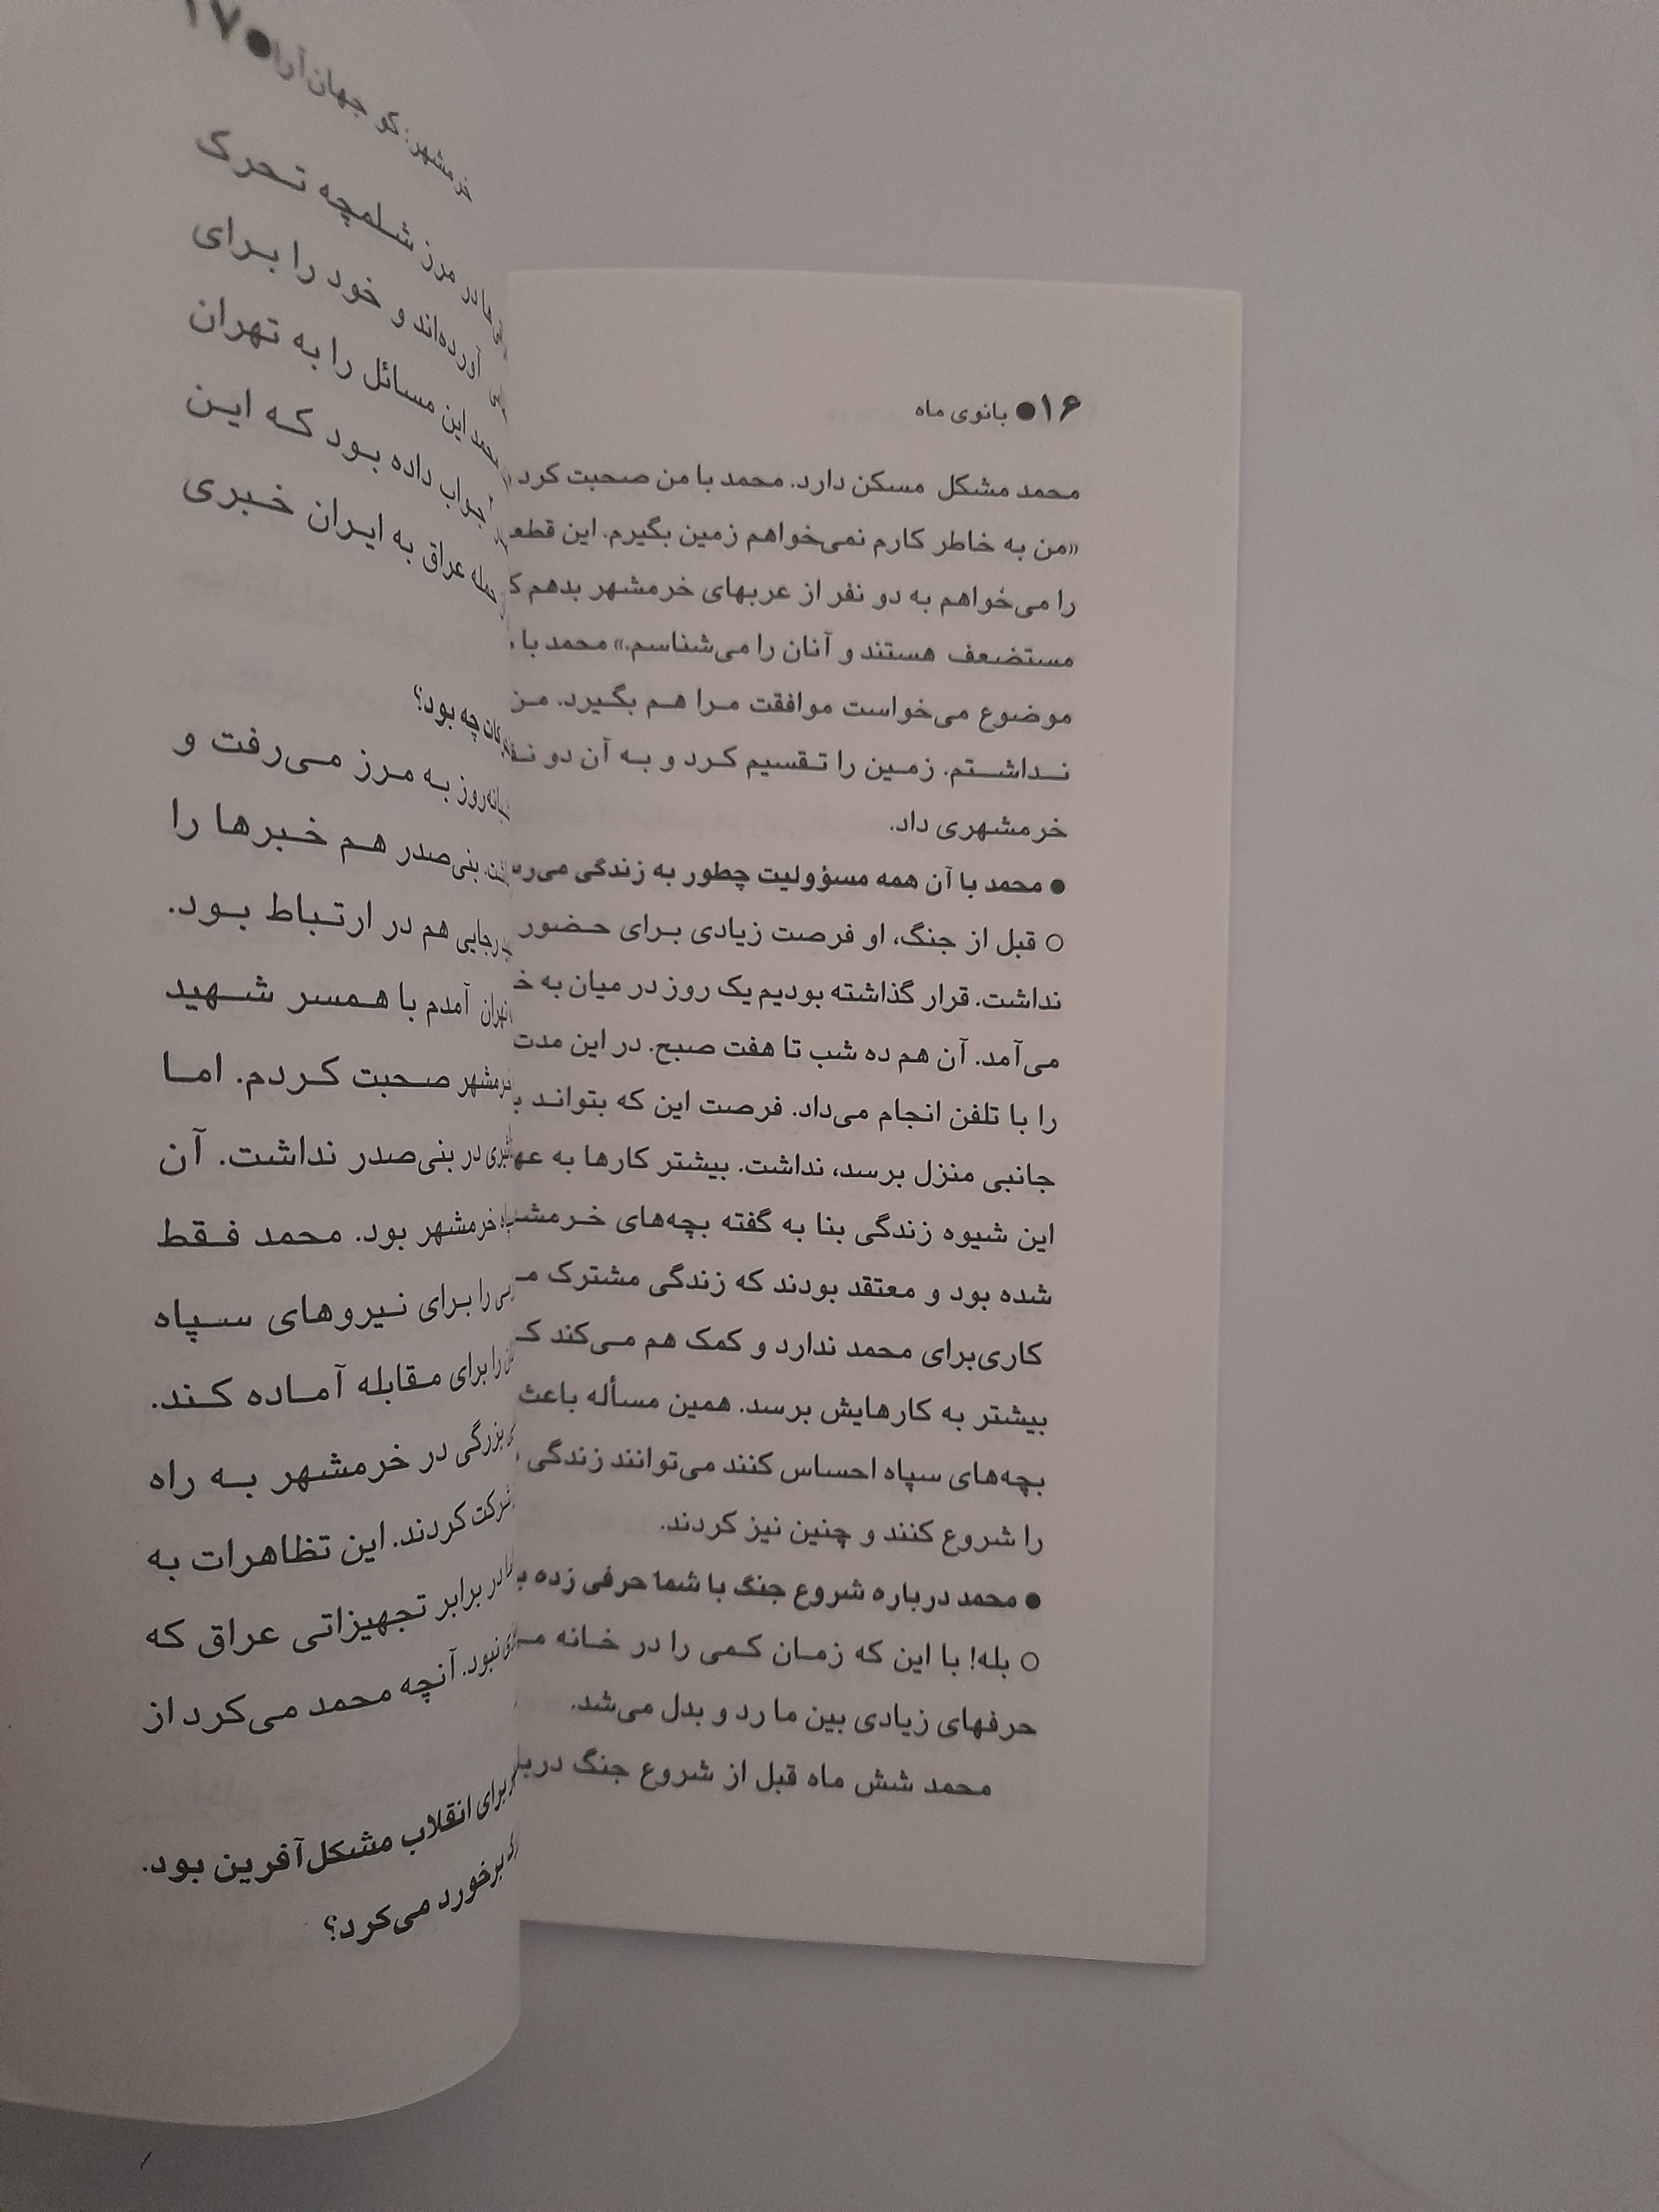 ۱۶ ● بانوی ماه
محمد مشکل مسکن دارد. محمد با من صحبت کرد
«من به خاطر کارم نمی‌خواهم زمین بگیرم. این
را می‌خواهم به دو نفر از عربهای خرمشهر بدهم
مستضعف هستند و آنان را می‌شناسم.» محمد با
موضوع می‌خواست موافقت مرا هم بگیرد. من
نداشتم. زمین را تقسیم کرد و به آن دو
خرمشهری داد.
● محمد با آن همه مسؤولیت چطور به زندگی
○ قبل از جنگ، او فرصت زیادی برای حضور
نداشت. قرار گذاشته بودیم یک روز در میان به
می‌آمد. آن هم ده شب تا هفت صبح. در این مدت
را با تلفن انجام می‌داد. فرصت این که بتواند
جانبی منزل برسد، نداشت. بیشتر کارها به
این شیوه زندگی بنا به گفته بچه‌های
شده بود و معتقد بودند که زندگی مشترک
کاری‌برای محمد ندارد و کمک هم می‌کند
بیشتر به کارهایش برسد. همین مسأله باعث
بچه‌های سپاه احساس کنند می‌توانند زندگی
را شروع کنند و چنین نیز کردند.
● محمد درباره شروع جنگ با شما حرفی زده
○ بله! با این که زمان کمی را در خانه
حرفهای زیادی بین ما رد و بدل می‌شد.
محمد شش ماه قبل از شروع جنگ
خرمشهر: کو جهان‌آرا ● ۱۷
در مرز شلمچه تحرک
آورده‌اند و خود را برای
این مسائل را به تهران
جواب داده بود که این
حمله عراق به ایران خبری
چه بود؟
به مرز می‌رفت و
بنی‌صدر هم خبرها را
رجایی هم در ارتباط بود.
تهران آمدم با همسر شهید
خرمشهر صحبت کردم. اما
در بنی‌صدر نداشت. آن
خرمشهر بود. محمد فقط
را برای نیروهای سپاه
را برای مقابله آماده کند.
بزرگی در خرمشهر به راه
شرکت کردند. این تظاهرات به
در برابر تجهیزاتی عراق که
نبود. آنچه محمد می‌کرد از
برای انقلاب مشکل‌آفرین بود.
برخورد می‌کرد؟